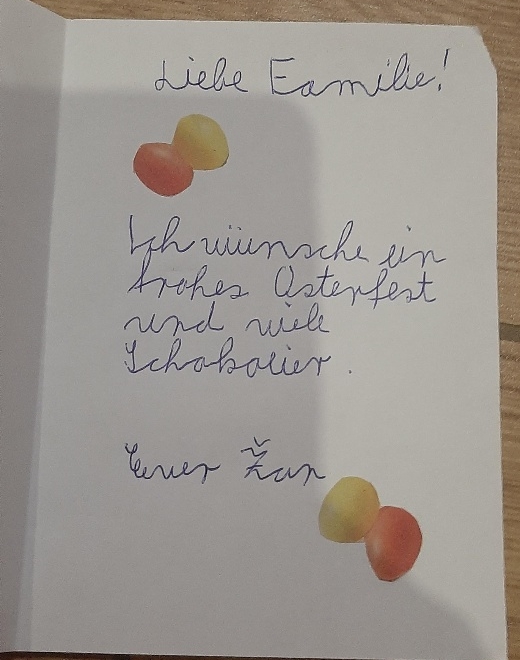 Liebe Familie!
Ich wünsche ein
frohes Osterfest
und viele
Schokoeier.
Euer Žan